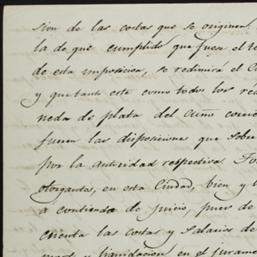 sion de las costas que se originen
la de que cumplido que fuese el té
de esta imposicion, se redimirá el C
y que tanto este como todos los red
neda de plata del cuño corrien
fueren las disposiciones que sobre
por la autoridad respectiva. To
otorgante, en esta Ciudad, bien y
a contienda de juicio, pues de
cuenta las costas y salarios de
y liquidacion en el juramen